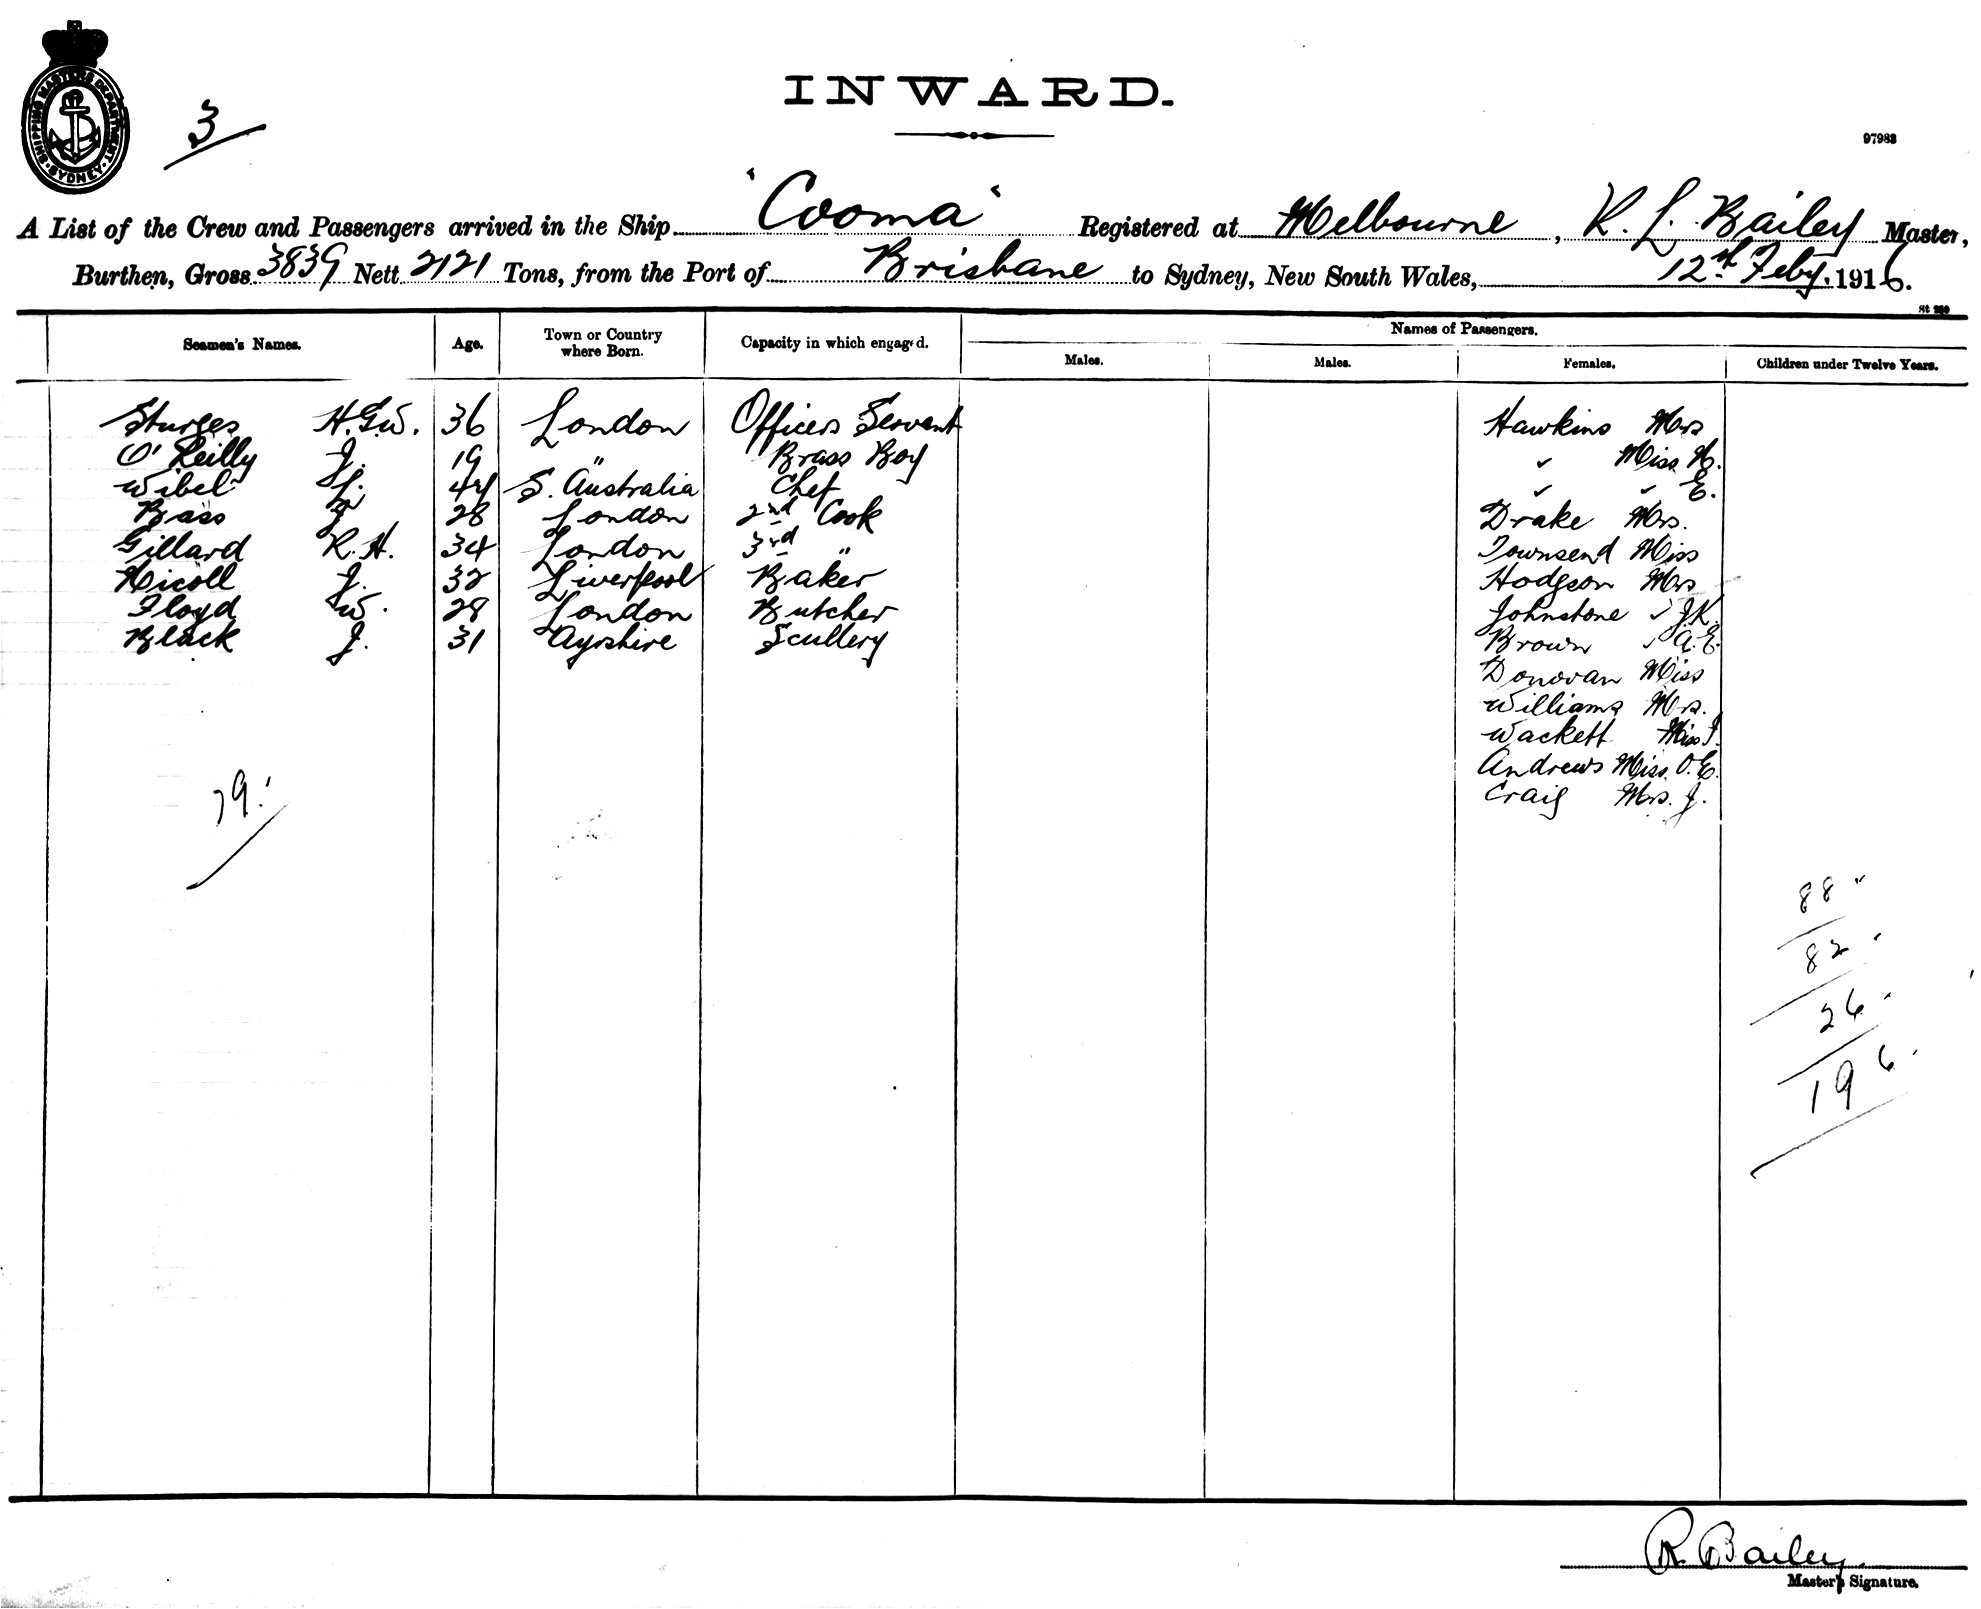 SHIPPING MASTERS DEPARTMENT
SYDNEY
3
INWARD.
97983
A List of the Crew and Passengers arrived in the Ship "Cooma" Registered at Melbourne, R. L. Bailey Master,
Burthen, Gross 3839 Nett 2121 Tons, from the Port of Brisbane to Sydney, New South Wales, 12th Feby. 1916.
St 290
Seamen's Names. Age. Town or Country where Born. Capacity in which engaged. Names of Passengers.
Males. Males. Females. Children under Twelve Years.
Sturges H.G.W. 36 London Officers Servant Hawkins Mrs
O'Reilly J. 19 " Brass Boy " Miss H.
Wibel L. 44 S. Australia Chef " " E.
Bass 28 London 2nd Cook Drake Mrs.
Gillard R. H. 34 London 3rd " Townsend Miss
Nicoll J. 32 Liverpool Baker Hodgson Mrs
Floyd W. 28 London Butcher Johnstone " J.K.
Black J. 31 Ayrshire Scullery Brown " A.E.
Donovan Miss
Williams Mrs.
Wackett Miss I.
Andrews Miss O.E.
Craig Mrs. J.
79.
88
82
26
196
R. Bailey
Master's Signature.